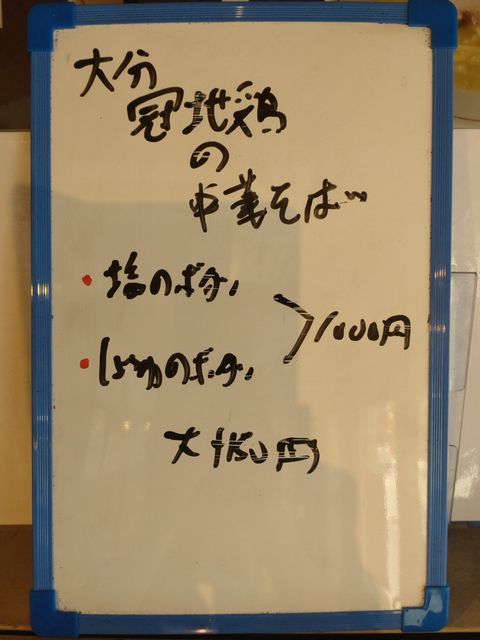 大分
冠地鶏
の
中華そば…
・塩の方
・しょうゆの方
1000円
大+150円